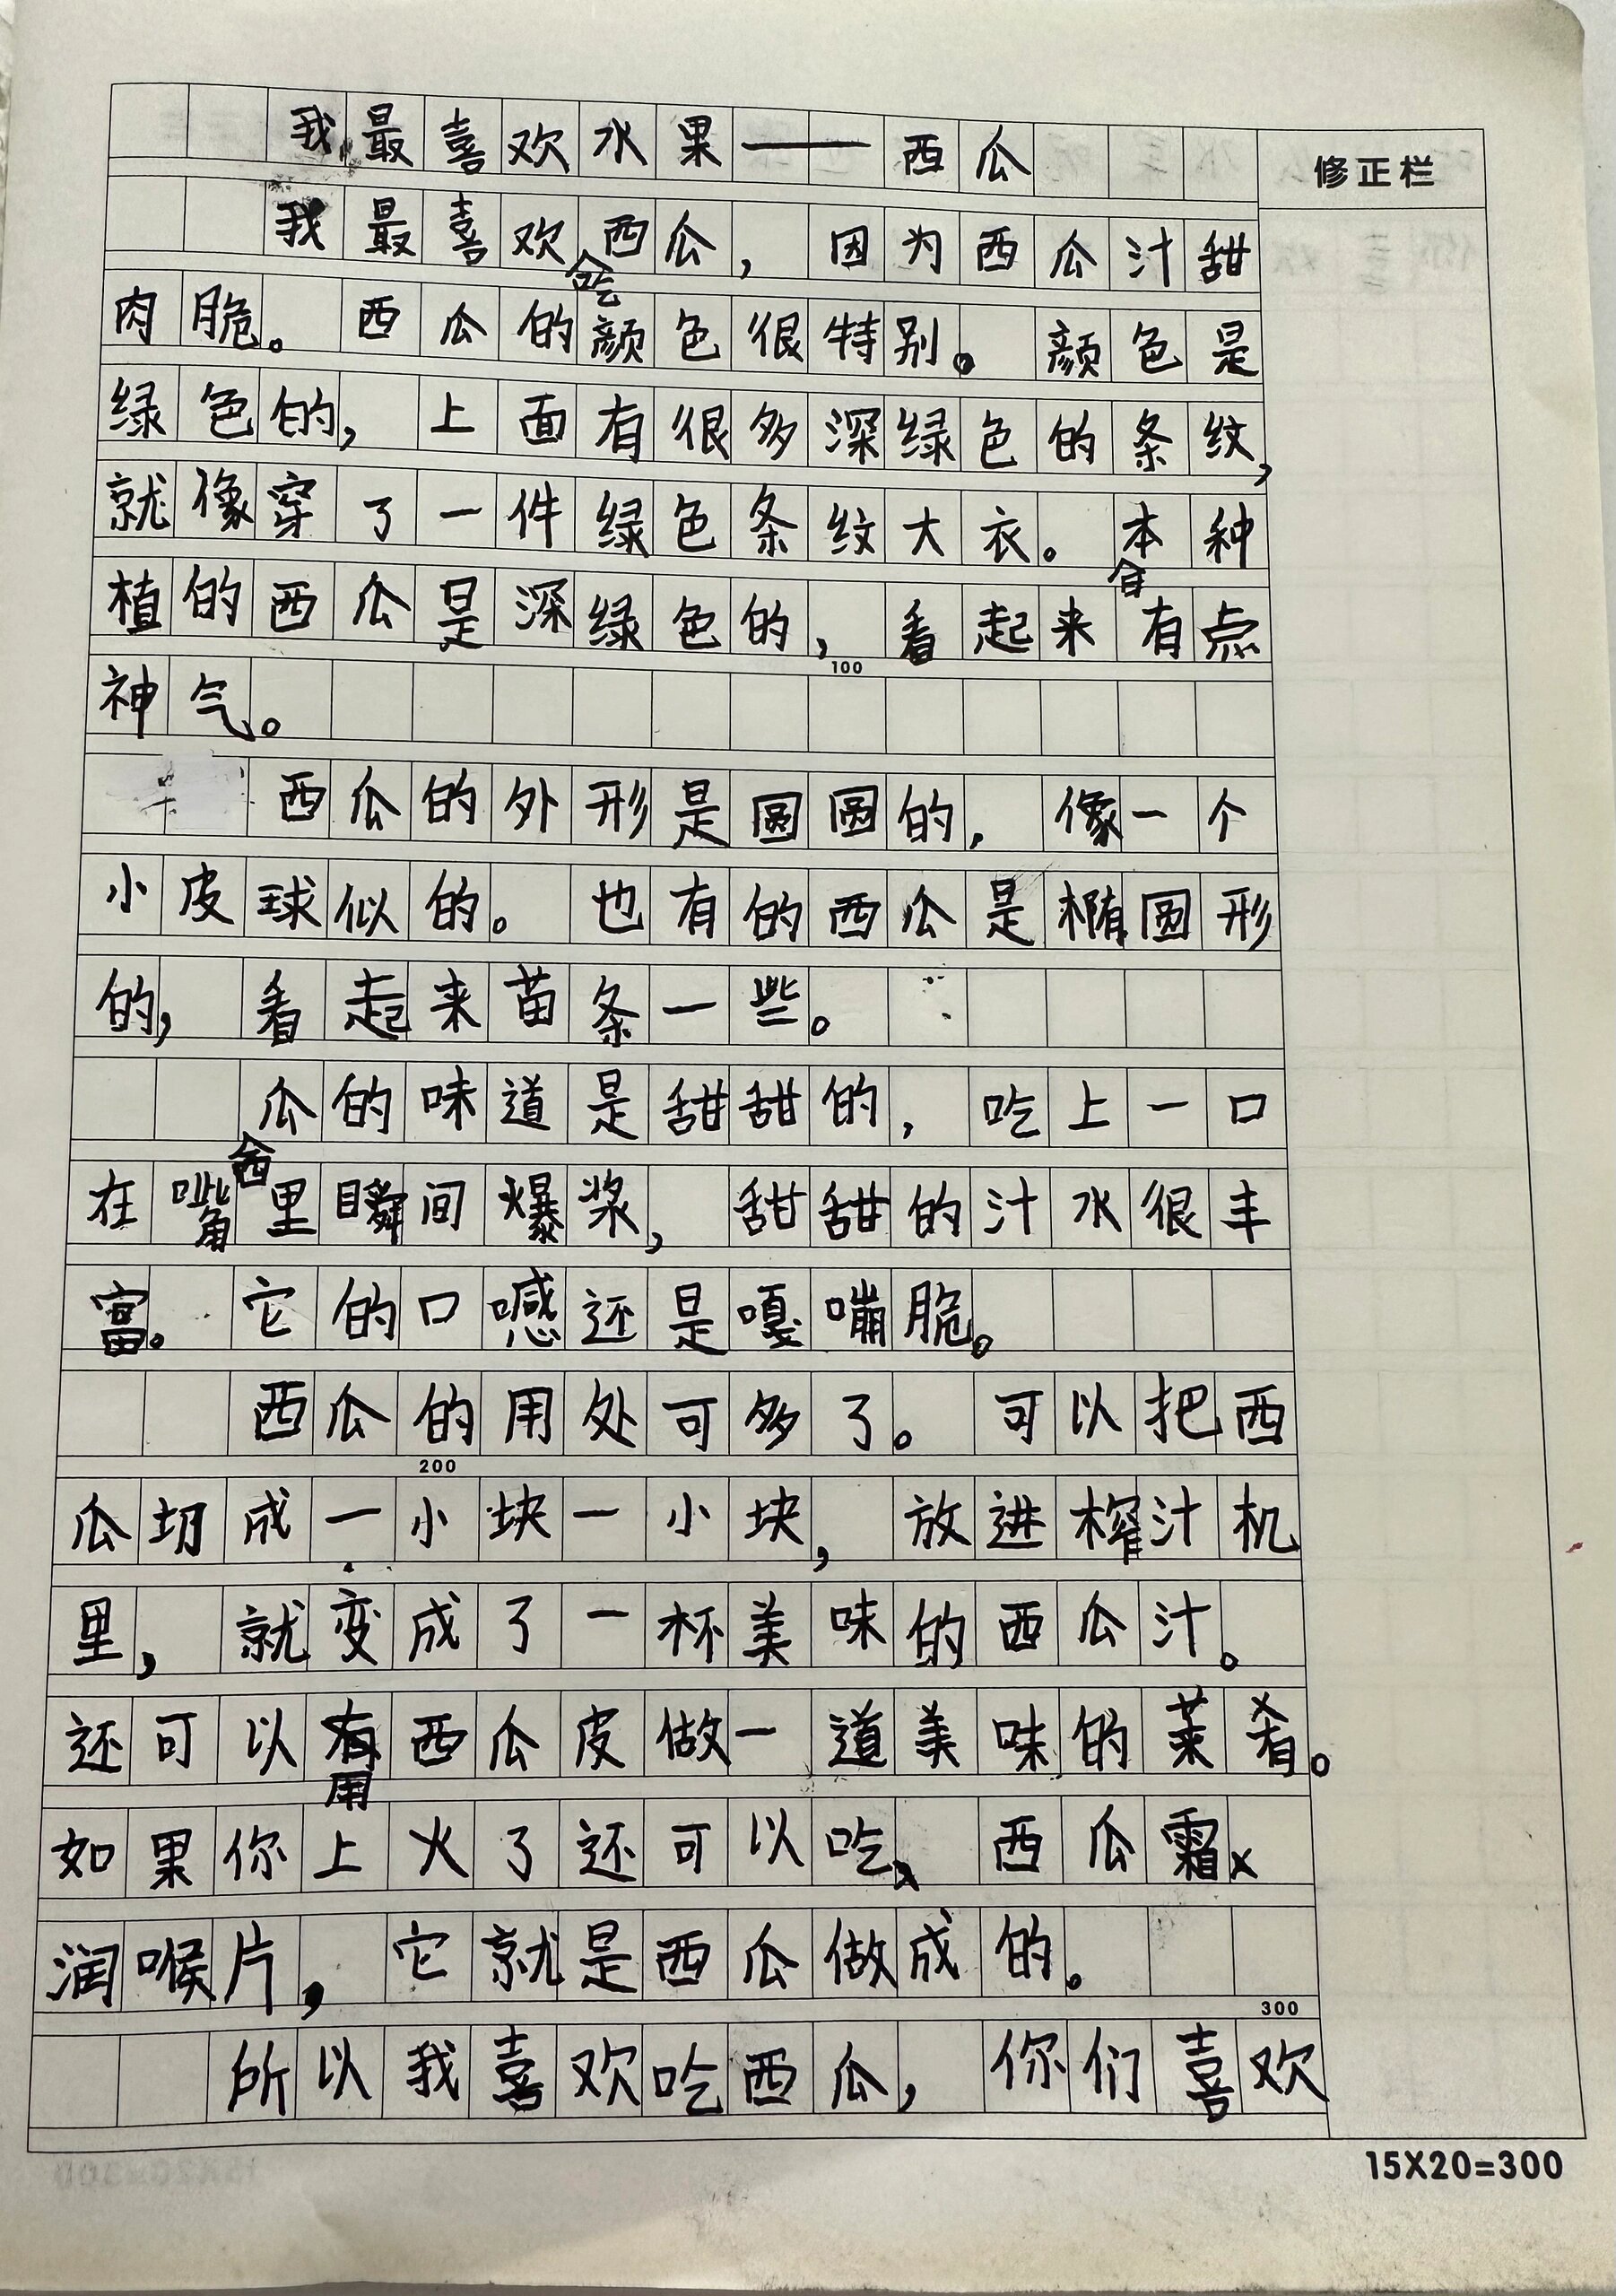 我最喜欢水果——西瓜
修正栏
我最喜欢吃西瓜，因为西瓜汁甜
肉脆。西瓜的颜色很特别。颜色是
绿色的，上面有很多深绿色的条纹，
就像穿了一件绿色条纹大衣。本种
植的西瓜是深绿色的，看起来有点
100
神气。
西瓜的外形是圆圆的，像一个
小皮球似的。也有的西瓜是椭圆形
的，看起来苗条一些。
西瓜的味道是甜甜的，吃上一口
在嘴里瞬间爆浆，甜甜的汁水很丰
富。它的口喊还是嘎嘣脆。
西瓜的用处可多了。可以把西
200
瓜切成一小块一小块，放进榨汁机
里，就变成了一杯美味的西瓜汁。
还可以用西瓜皮做一道美味的菜肴。
如果你上火了还可以吃西瓜霜
润喉片，它就是西瓜做成的。
300
所以我喜欢吃西瓜，你们喜欢
15X20=300